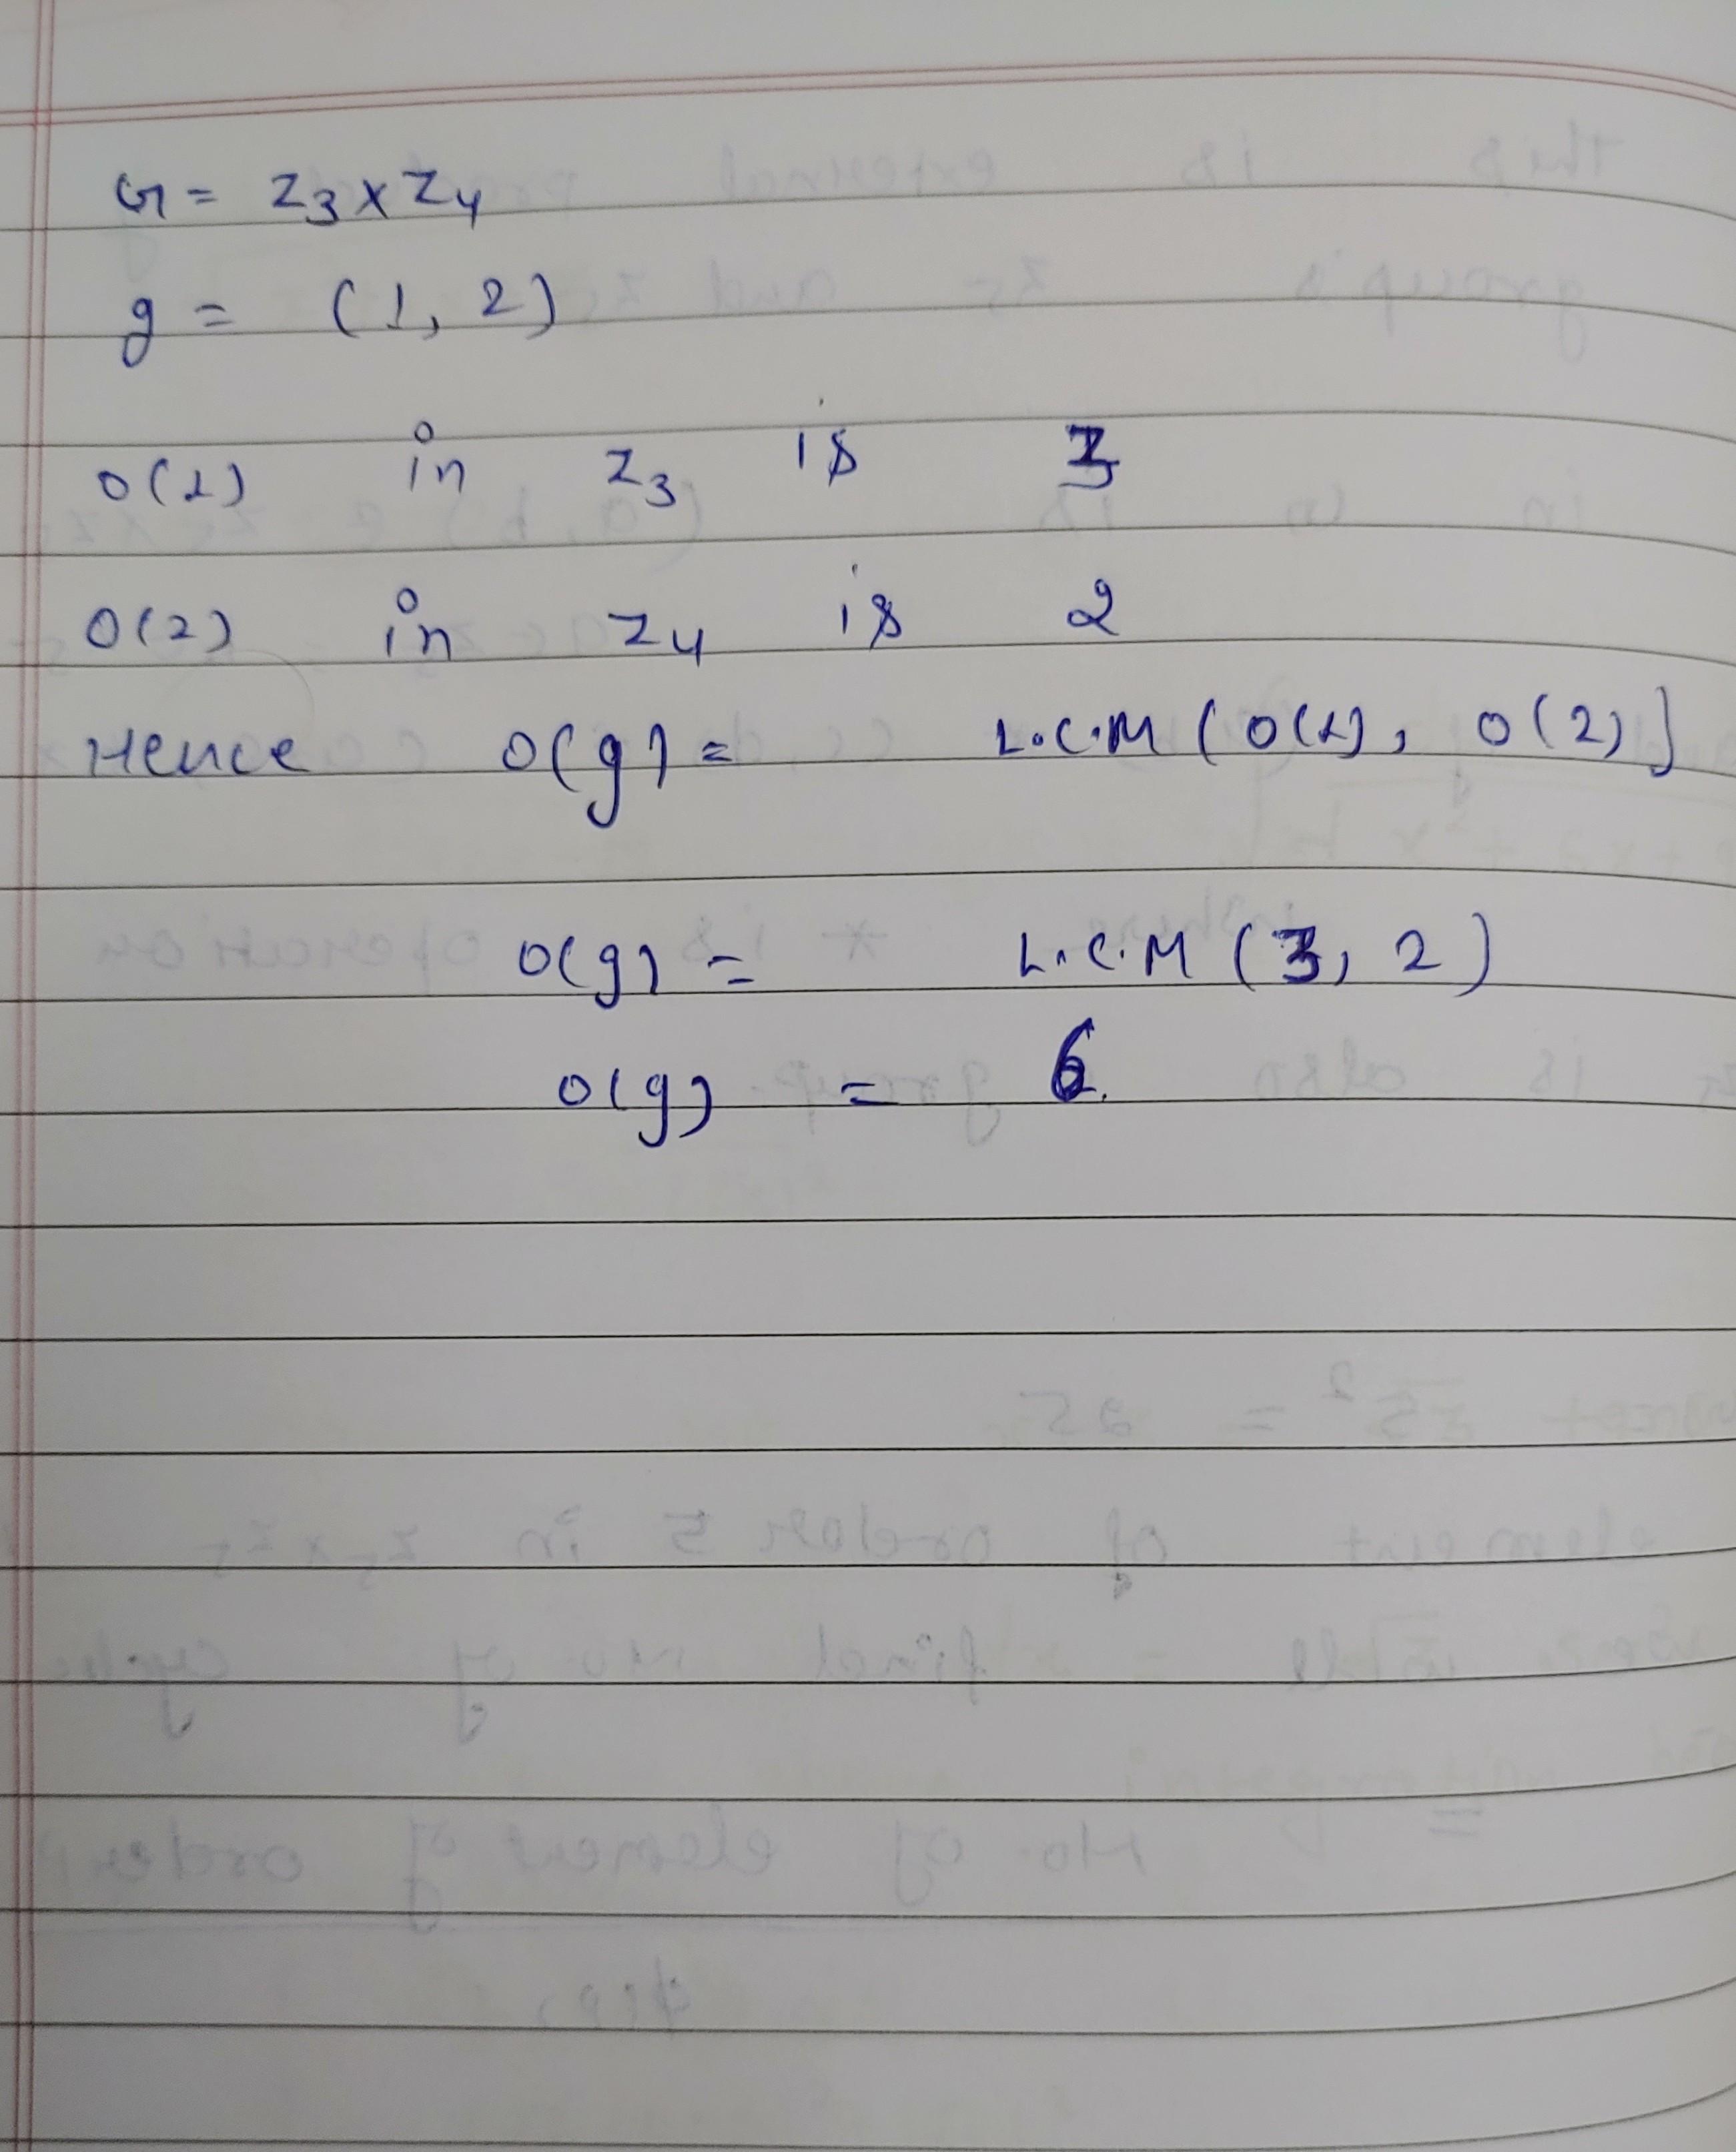 G = Z3 x Z4
g = (1, 2)
O(1) in Z3 is 3
O(2) in Z4 is 2
Hence O(g) = L.C.M (O(1), O(2)]
O(g) = L.C.M (3, 2)
O(g) = 6.